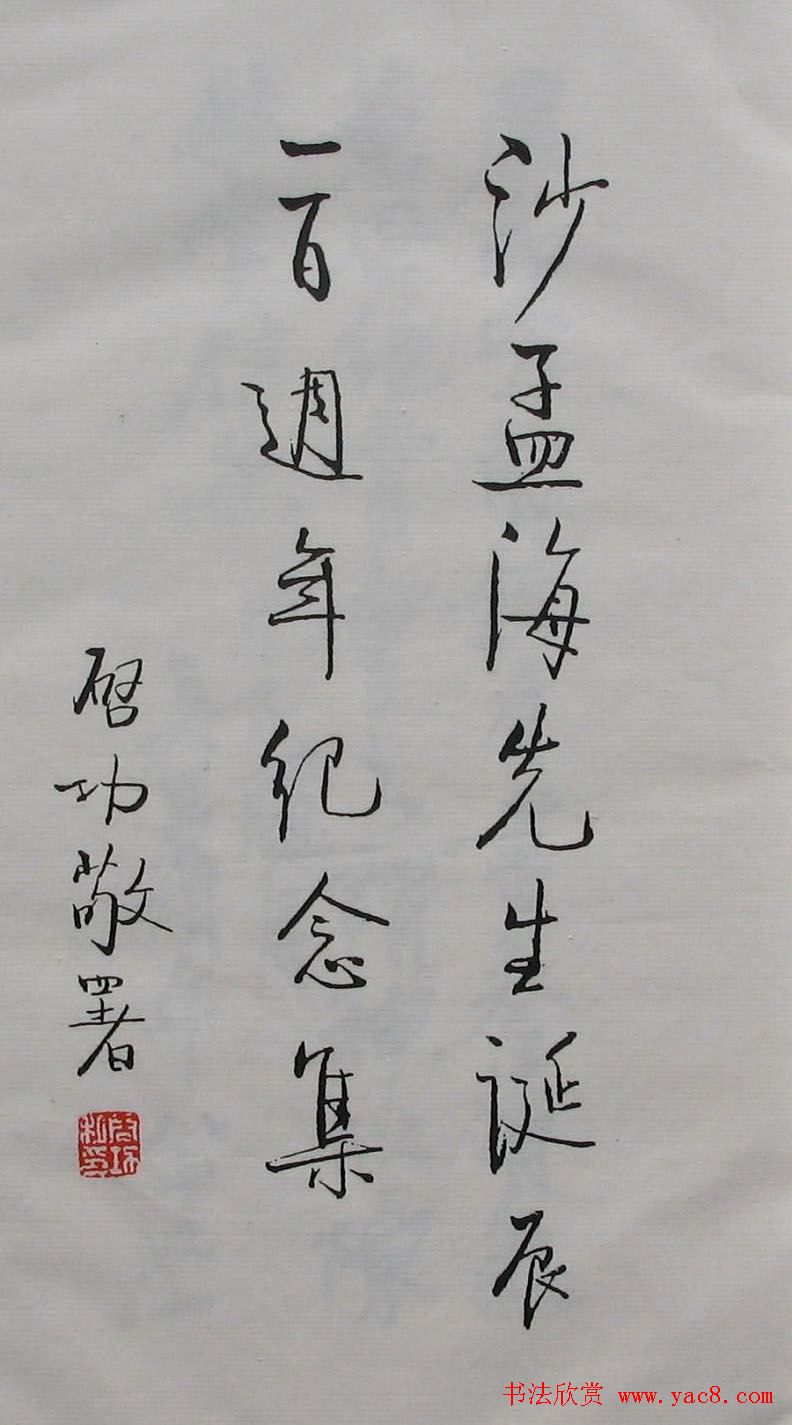 沙孟海先生诞辰
一百週年纪念集
启功敬署
启功私印
书法欣赏 www.yac8.com